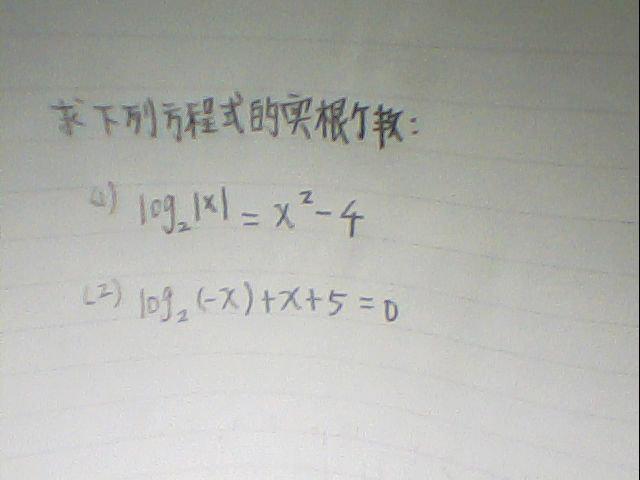 求下列方程式的实根个数:
(1) log₂|x| = x² - 4
(2) log₂(-x) + x + 5 = 0